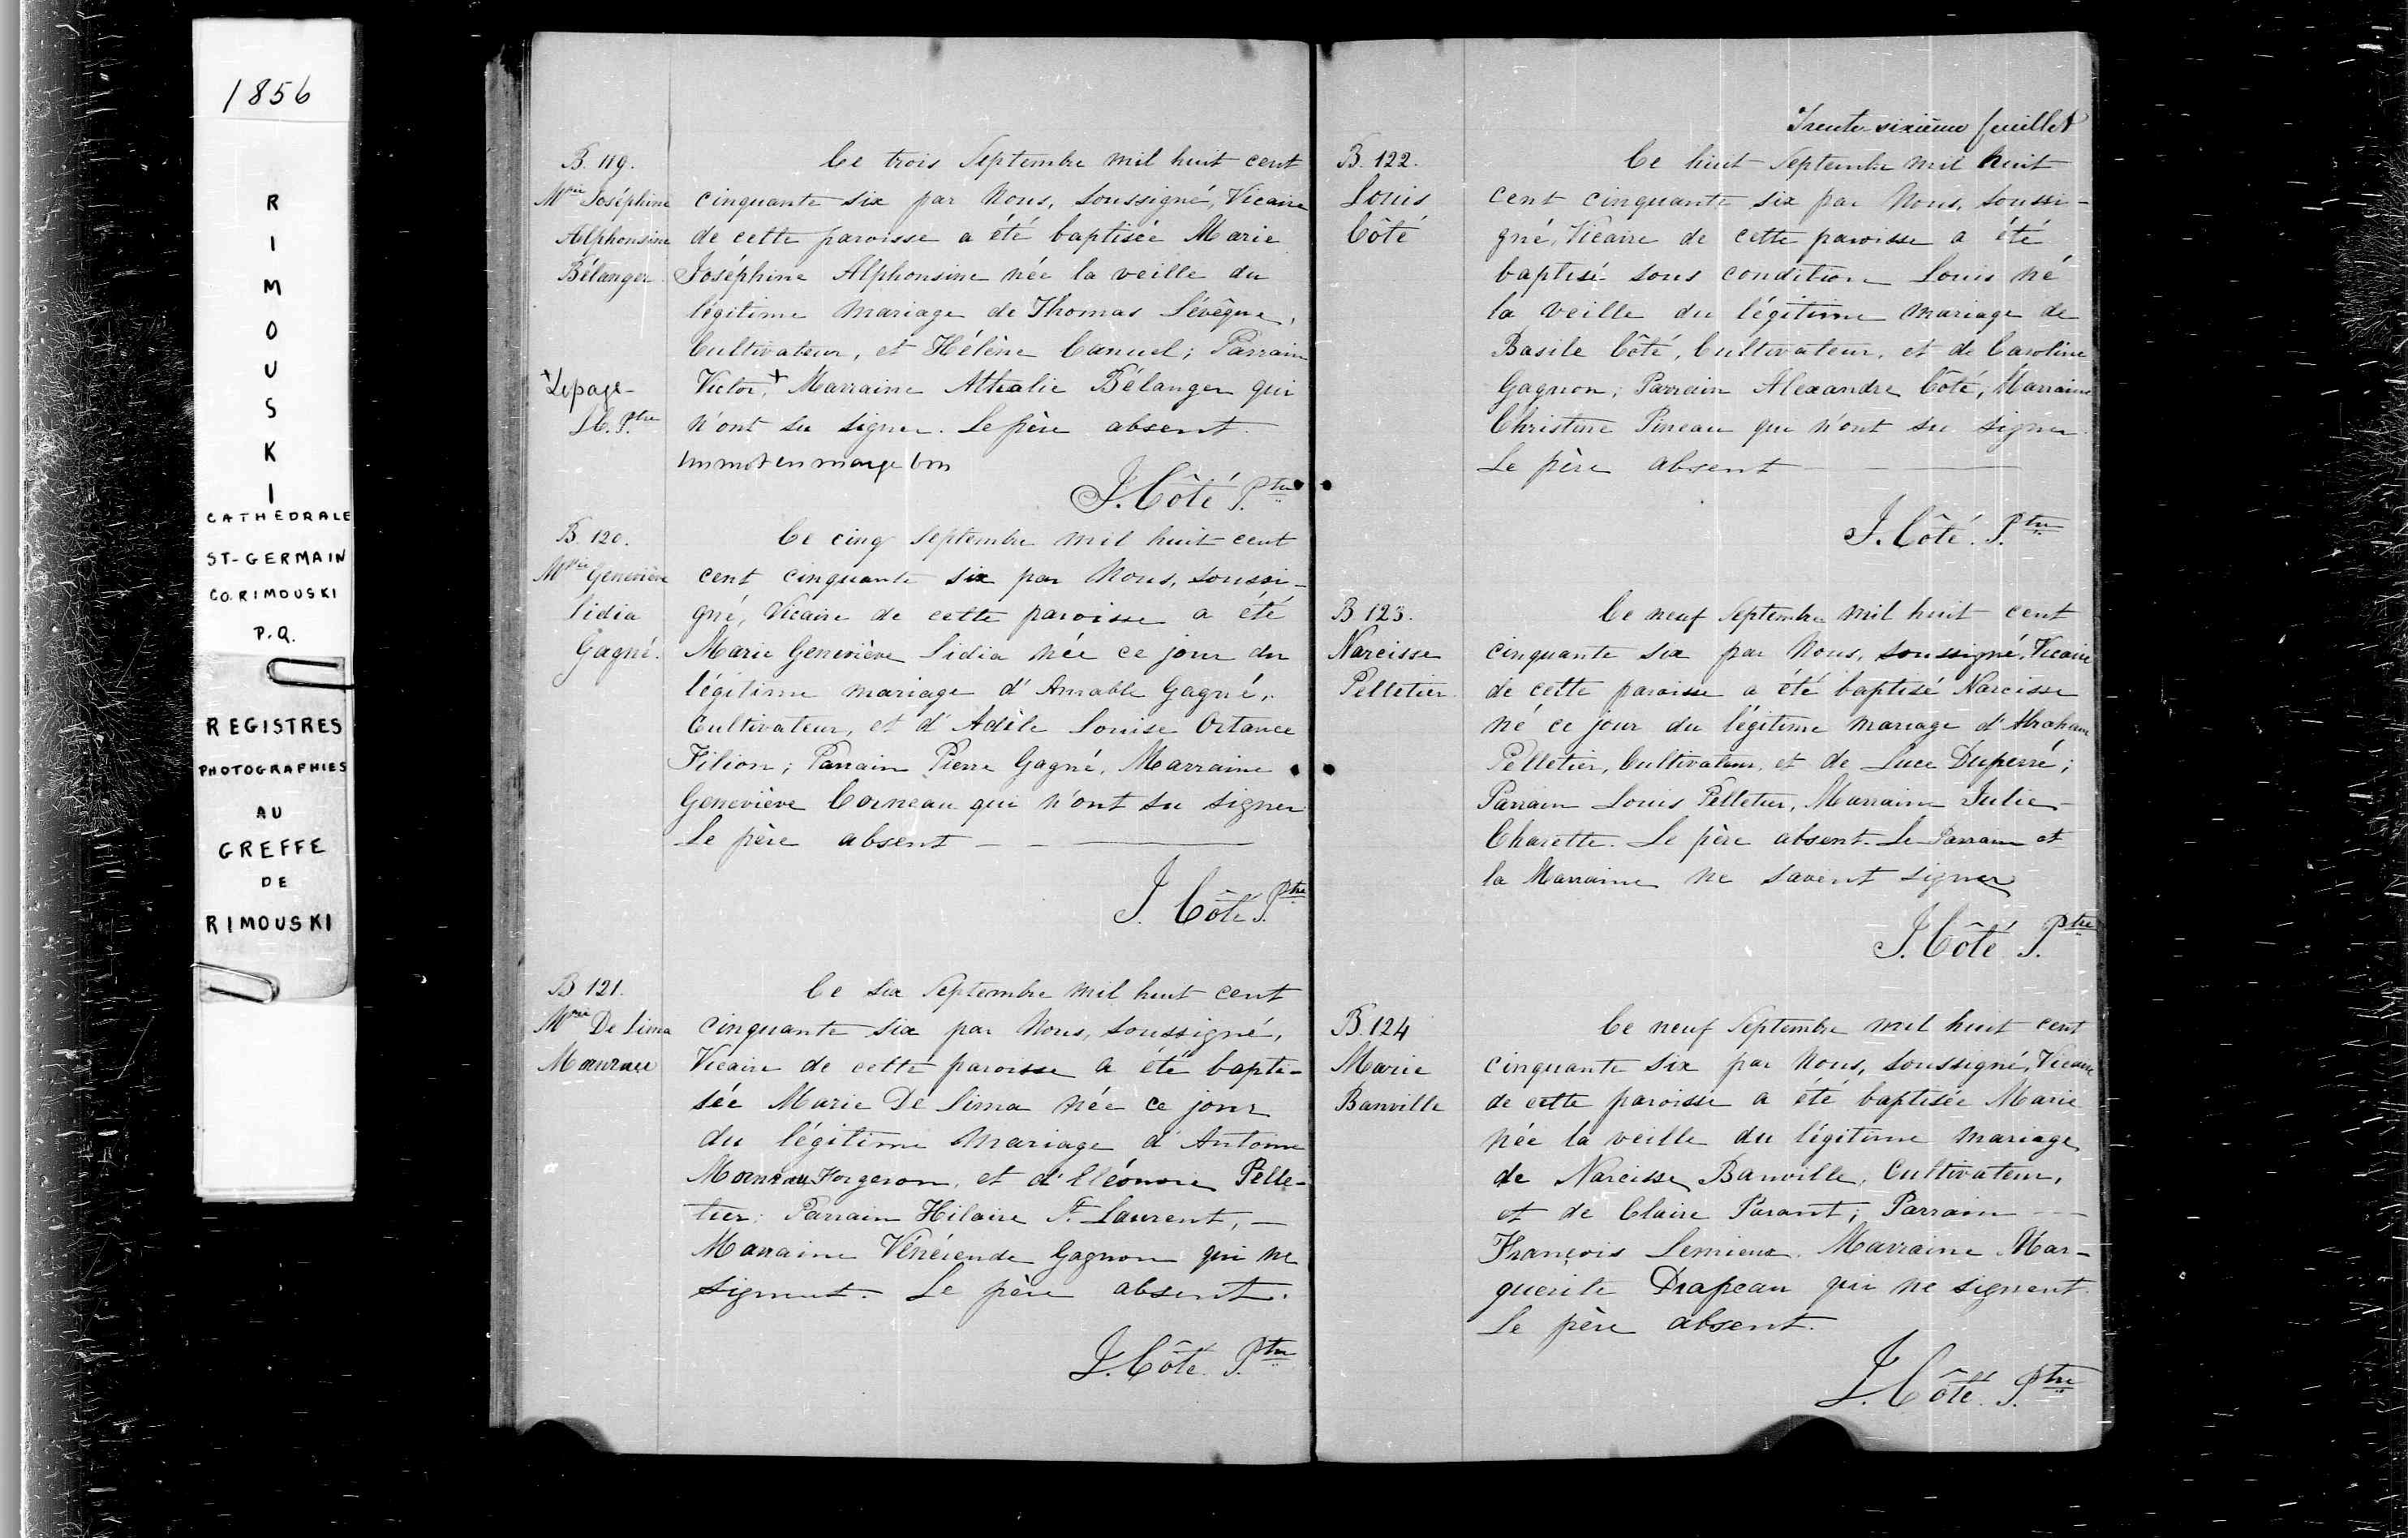 1856
R
I
M
O
U
S
K
I
CATHEDRALE
ST-GERMAIN
CO. RIMOUSKI
P.Q.
REGISTRES
PHOTOGRAPHIES
AU
GREFFE
DE
RIMOUSKI
B. 119.
Mrie Joséphine
Alphonsine
Bélanger
Ce trois Septembre mil huit cent
cinquante six par Nous, soussigné, Vicaire
de cette paroisse a été baptisée Marie
Joséphine Alphonsine née la veille du
légitime mariage de Thomas Lévêque,
Cultivateur, et Hélène Canuel; Parrain
Victor,+ Marraine Athalie Bélanger qui
n'ont su signer. Le père absent.
+Lepage
J.C. Ptre
Un mot en marge bon
J. Côté Ptre
B. 120.
Mrie Geneviève
Lidia
Gagné.
Ce cinq Septembre mil huit cent
cent cinquante six par Nous, soussi-
gné, Vicaire de cette paroisse a été
Marie Geneviève Lidia née ce jour du
légitime mariage d'Amable Gagné,
Cultivateur, et d'Adèle Louise Ortance
Filion; Parrain Pierre Gagné, Marraine
Geneviève Corneau qui n'ont su signer
Le père absent
J. Côté Ptre
B 121.
Mrie De Lima
Ce six Septembre mil huit cent
cinquante six par Nous, soussigné,
Vicaire de cette paroisse a été bapti-
sée Marie De Lima née ce jour
du légitime mariage d'Antoine
Forgeron, et d'Eléonore Pelle-
tier; Parrain Hilaire St Laurent,
Marraine Vénérende Gagnon qui ne
signent. Le père absent.
J. Côté Ptre
Trente-sixième feuillet
B. 122.
Louis
Côté
Ce huit Septembre mil huit
cent cinquante six par Nous, soussi-
gné, Vicaire de cette paroisse a été
baptisé sous condition Louis né
la veille du légitime mariage de
Basile Côté, Cultivateur, et de Caroline
Gagnon; Parrain Alexandre Côté, Marraine
Christine Pineau qui n'ont su signer
Le père absent
J. Côté. Ptre
B 123.
Narcisse
Pelletier
Ce neuf Septembre mil huit cent
cinquante six par Nous, soussigné, Vicaire
de cette paroisse a été baptisé Narcisse
né ce jour du légitime mariage d'Abraham
Pelletier, Cultivateur, et de Luce Duperré;
Parrain Louis Pelletier, Marraine Julie
Charette. Le père absent. Le Parrain et
la Marraine ne savent signer
J. Côté Ptre
B. 124
Marie
Banville
Ce neuf Septembre mil huit cent
cinquante six par Nous, soussigné, Vicaire
de cette paroisse a été baptisée Marie
née la veille du légitime mariage
de Narcisse Banville, Cultivateur,
et de Claire Parant; Parrain
François Lemieux. Marraine Mar-
guerite Drapeau qui ne signent.
Le père absent.
J. Côté. Ptre